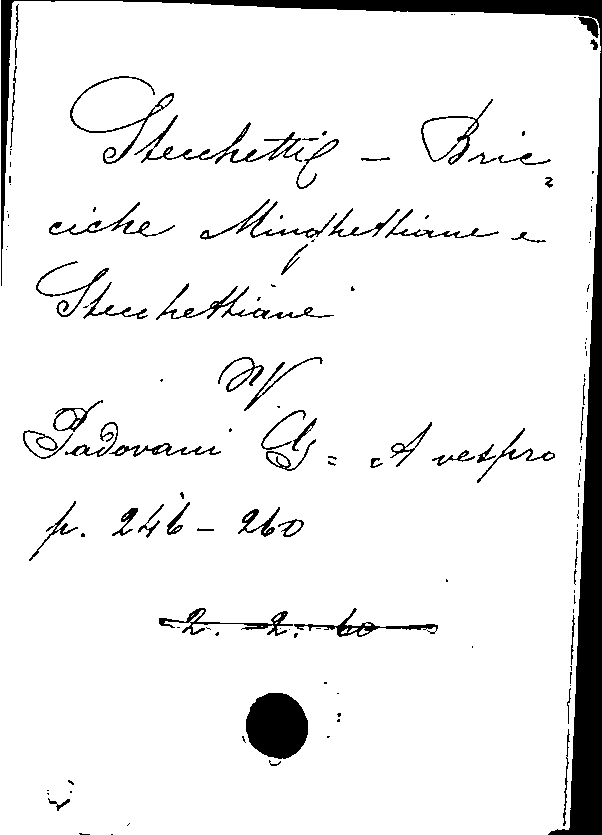 Stecchetti - Bric=
ciche Minghettiane e
Stecchettiane
in
Padovani G = A vespro
p. 246 - 260
2. 2. 60